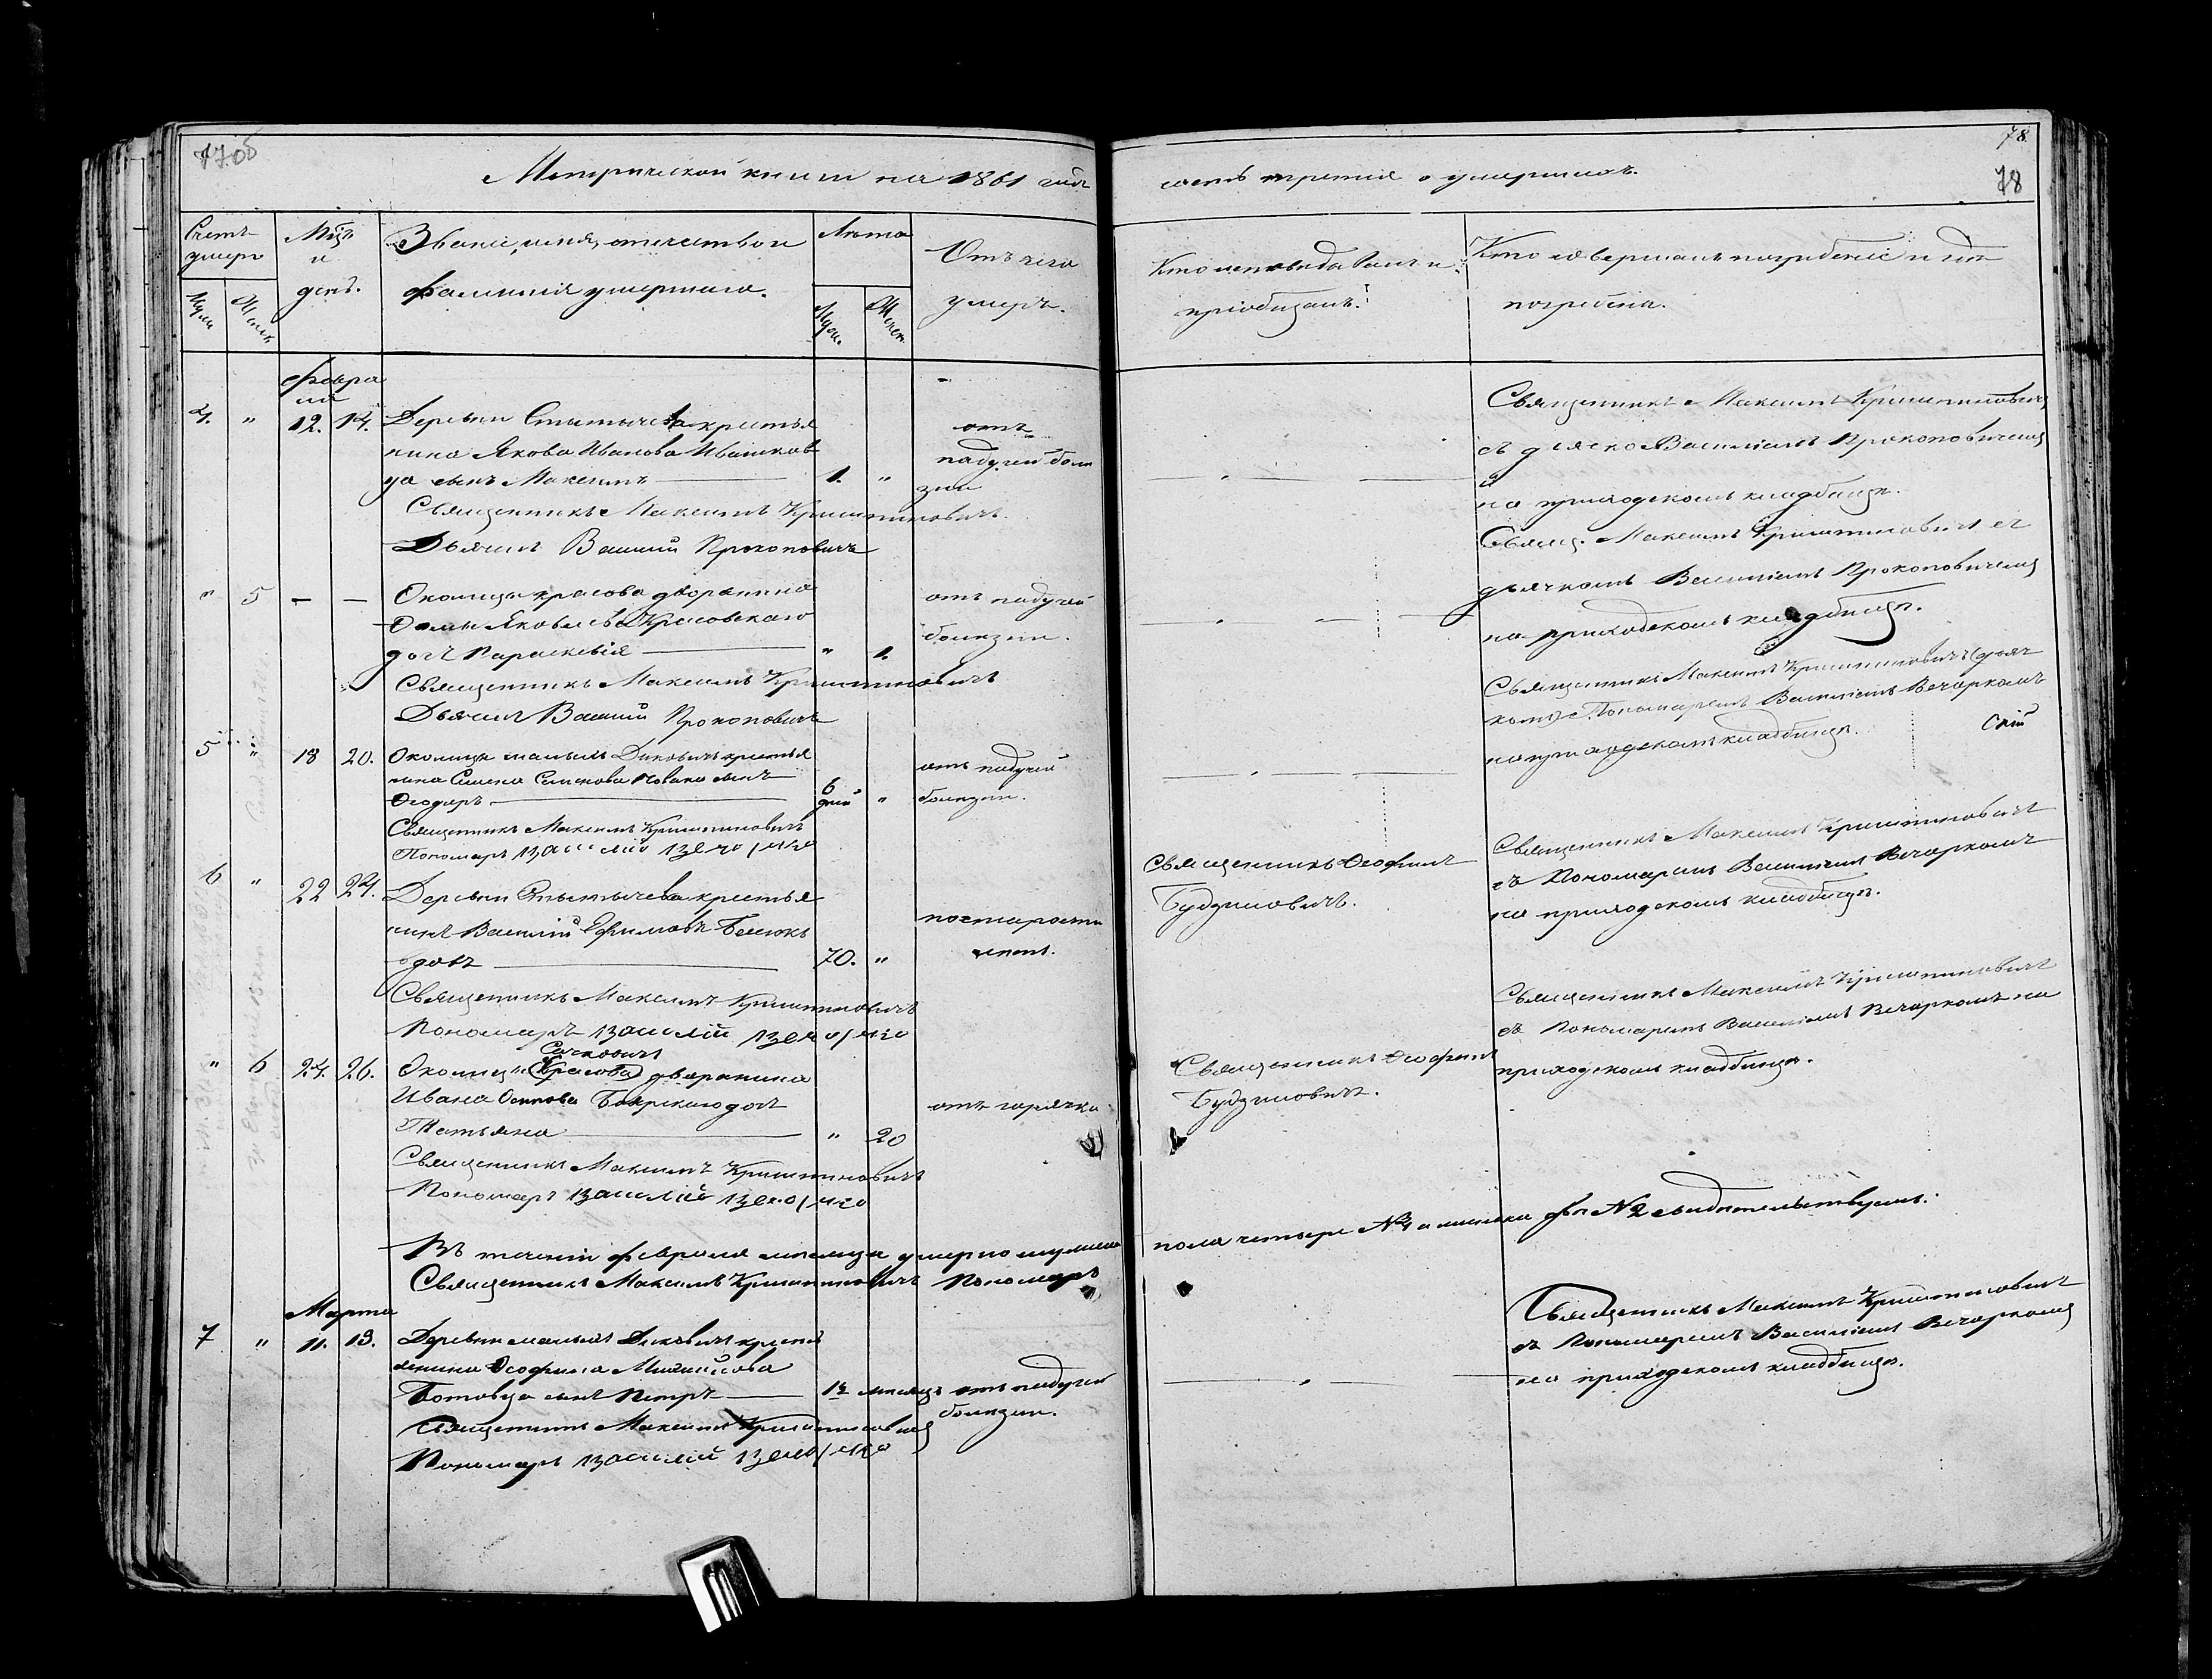 77об
78
78
Метрической книги на 1861 годъ часть третія о умершихъ.
Счетъ умерш
Муж
Женск
Мсцъ и день.
Званіе, имя, отчество и фамилія умершаго.
Лѣта
Муж.
Женск.
Отъ чего умеръ.
Кто исповѣдавалъ и пріобщалъ.
Кто совершалъ погребеніе и гдѣ погребены.
Февраля
4. " 12. 14. Деревни Стытычева крестья
нина Якова Иванова
сынъ Максимъ 1. "
отъ падучей болѣ
зни
Священникъ Максимъ Криштиновичъ
Дьячекъ Василій Прокоповичъ
Священникъ Максимъ Криштиновичъ
съ дьячкомъ Василіемъ Прокоповичемъ
на приходскомъ кладбищѣ.
" 5 — — Околицы Красова дворянина
Фомы Яковлева Красовскаго
дочь Параскевія " 1.
отъ падучей
болѣзни.
Священникъ Максимъ Криштиновичъ
Дьячекъ Василій Прокоповичъ
Свящ. Максимъ Криштиновичъ съ
дьячкомъ Василіемъ Прокоповичемъ
на приходскомъ кладбищѣ.
5 " 18 20. Околицы малыхъ Диковичъ крестья
нина Семена Семенова сынъ
Ѳеодоръ 6 дней "
отъ падучей
болѣзни.
Священникъ Максимъ Криштиновичъ
Пономарь Василій Вечорко
Священникъ Максимъ Криштиновичъ
Пономаремъ Василіемъ Вечоркомъ
на приходскомъ кладбищѣ.
6 " 22 24. Деревни Стытычева крестья
нинъ Василій Ефимовъ Белюкъ
вдовъ 70. "
по старости
лѣтъ.
Священникъ Максимъ Криштиновичъ
Пономарь Василій Вечорко
Священникъ Ѳеофилъ
Будзиловичъ.
Священникъ Максимъ Криштиновичъ
съ Пономаремъ Василіемъ Вечоркомъ
на приходскомъ кладбищѣ.
" 6 24. 26. Околицы (Красова) дворянина
Сачковичъ
Ивана Осипова Боярскаго дочь
Татьяна " 20
отъ горячки
Священникъ Максимъ Криштиновичъ
Пономарь Василій Вечорко
Священникъ Ѳеофилъ
Будзиловичъ.
Священникъ Максимъ Криштиновичъ
съ Пономаремъ Василіемъ Вечоркомъ на
приходскомъ кладбищѣ.
Въ теченіи февраля мѣсяца умерло мужеска пола четыре №4 а женска два №2 свидѣтельствуемъ.
Священникъ Максимъ Криштиновичъ Пономарь
Марта
7 " 11. 13. Деревни малыхъ Диковичъ кресть
янина Ѳеофила Михайлова
Ботовца сынъ Петръ 1½ мѣсяцъ отъ падучей
болѣзни.
Священникъ Максимъ Криштиновичъ
Пономарь Василій Вечорко
Священникъ Максимъ Криштиновичъ
съ Пономаремъ Василіемъ Вечоркомъ
на приходскомъ кладбищѣ.